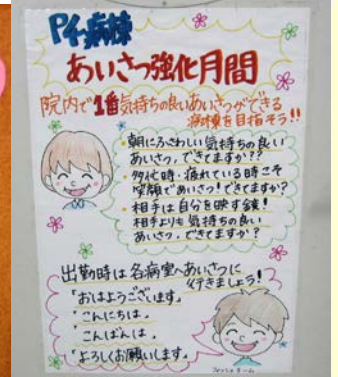 病棟
あいさつ強化月間
院内で1番気持ちの良いあいさつができる
病棟を目指そう!!
・朝にふさわしい気持ちの良い
あいさつ、できてますか??
・多忙時・疲れている時こそ
笑顔であいさつ!できてますか?
・相手は自分を映す鏡!
相手よりも気持ちの良い
あいさつ、できてますか?
出勤時は各病室へあいさつに
行きましょう!
・おはようございます。
・こんにちは。
・こんばんは。
・よろしくお願いします。
チーム